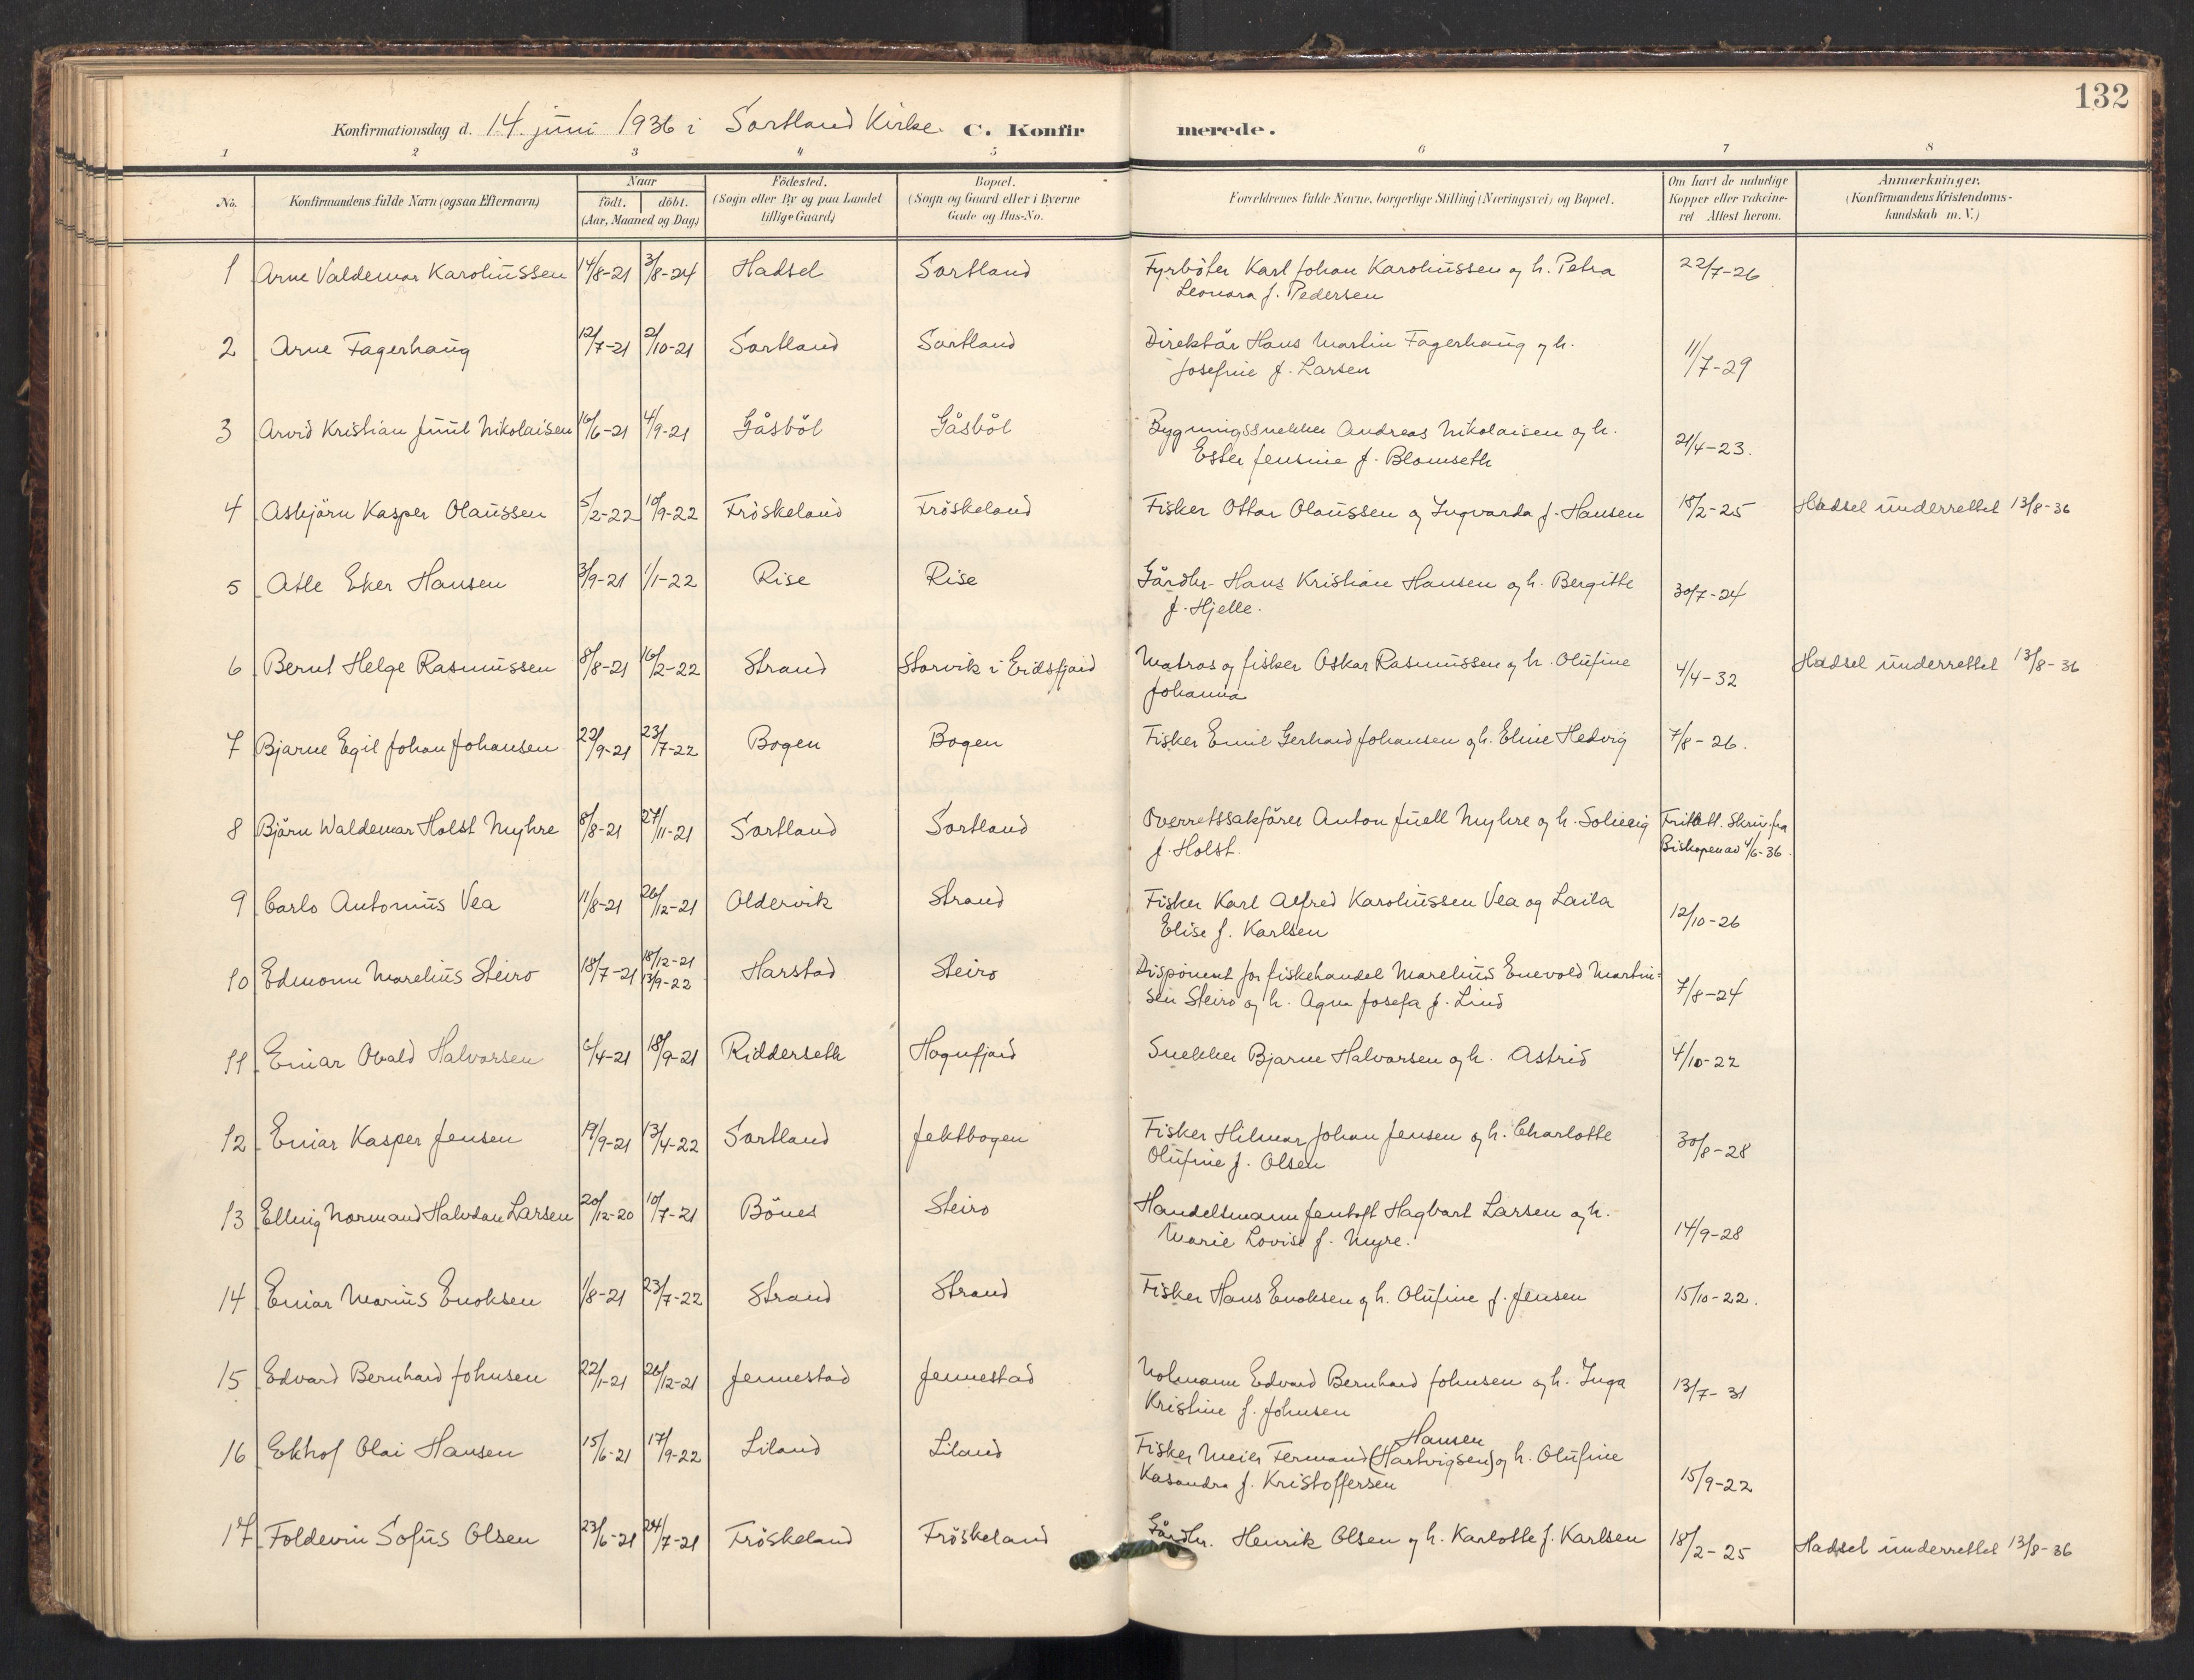 132
Konfirmationsdag d. 14. juni 1936 i Sortland Kirke. C. Konfirmerede.
1 2 3 4 5 6 7 8
No. Konfirmandens fulde Navn (ogsaa Efternavn) Naar födt. döbt. (Aar, Maaned og Dag) Födested. (Sogn eller By og paa Landet tillige Gaard) Bopæl. (Sogn og Gaard eller i Byerne Gade og Hus-No. Forældrenes fulde Navne, borgerlige Stilling (Næringsvei) og Bopæl. Om havt de naturlige Kopper eller vakcineret Attest herom. Anmærkninger. (Konfirmandens Kristendomskundskab m. V.)
1 Arne Valdemar Karoliussen 14/8-21 3/8-24 Hadsel Sortland Fyrböter Karl Johan Karoliussen og h. Petra 22/7-26
Leonora f. Pedersen
2 Arne Fagerhaug 12/7-21 2/10-21 Sortland Sortland Direktör Hans Martin Fagerhaug og h. 11/7-29
Josefine f. Larsen
3 Arvid Kristian Juul Nikolaisen 16/6-21 4/9-21 Gåsböl Gåsböl Bygningssnekker Andreas Nikolaisen og h. 21/4-23.
Ester Jensine f. Blomseth
4 Asbjörn Kasper Olaussen 5/2-22 10/9-22 Fröskeland Fröskeland Fisker Ottar Olaussen og Ingvarda f. Hansen 18/2-25 Hadsel underrettet 13/8-36
5 Atle Eker Hansen 3/9-21 1/1-22 Rise Rise Gårdbr. Hans Kristian Hansen og h. Bergitte 30/7-24
f. Hjelle.
6 Bernt Helge Rasmussen 8/8-21 16/2-22 Strand Storvik i Eidsfjord Matros og fisker Oskar Rasmussen og h. Olufine 4/4-32 Hadsel underrettet 13/8-36
Johanna
7 Bjarne Egil Johan Johansen 22/9-21 23/7-22 Bogen Bogen Fisker Emil Gerhard Johansen og h. Eline Hedvig 7/8-26.
8 Björn Waldemar Holst Myhre 8/8-21 27/11-21 Sortland Sortland Overretssakförer Anton Juell Myhre og h. Solveig Fritatt. Skriv fra
f. Holst. Biskopen av 4/6-36.
9 Carlo Antonius Vea 11/8-21 26/12-21 Oldervik Strand Fisker Karl Alfred Karoliussen Vea og Laila 12/10-26
Elise f. Karlsen
10 Edmonn Marelius Steiro 18/7-21 18/12-21 13/9-22 Harstad Steiro Disponent for fiskehandel Marelius Enevold Martin- 7/8-24
sen Steiro og h. Agna Josefa f. Lind
11 Einar Obald Halvorsen 6/4-21 18/9-21 Ridderseth Hognfjord Snekker Bjarne Halvorsen og h. Astrid 4/10-22
12 Einar Kasper Jensen 19/9-21 13/4-22 Sortland Jektbogen Fisker Hilmar Johan Jensen og h. Charlotte 30/8-28
Olufine f. Olsen
13 Elling Normand Halvdan Larsen 20/12-20 10/7-21 Bönes Steiro Handelsmann Jentoft Hagbart Larsen og h. 14/9-28
Marie Lovise f. Myre.
14 Einar Marius Enoksen 1/8-21 23/7-22 Strand Strand Fisker Hans Enoksen og h. Olufine f. Jensen 15/10-22.
15 Edvard Bernhard Johnsen 22/1-21 26/12-21 Jennestad Jennestad Edvard Bernhard Johnsen og h. Inga 13/7-31
Kristine f. Johnsen
Hansen
16 Ekhof Olai Hansen 15/6-21 17/9-22 Liland Liland Fisker Meier Fermand (Hartvigsen) og h. Olufine 15/9-22
Kasandra f. Kristoffersen
17 Foldevin Sofus Olsen 23/6-21 24/7-21 Fröskeland Fröskeland Gårdbr. Henrik Olsen og h. Karlotte f. Karlsen 18/2-25 Hadsel underrettet 13/8-36